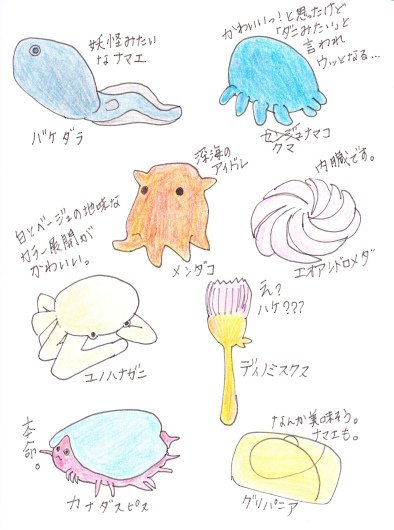 妖怪みたい
なナマエ
バケダラ
かわいいっ!と思ったけど
「ダニみたい」と
言われ
ウッとなる…
センジュナマコ
クマ
深海の
アイドル
メンダコ
内臓です。
エオアンドロメダ
白とベージュの地味な
カラー展開が
かわいい。
ユノハナガニ
え?
ハケ???
ディノミスクス
本命。
カナダスピス
なんか美味そう。
ナマエも。
グリパニア